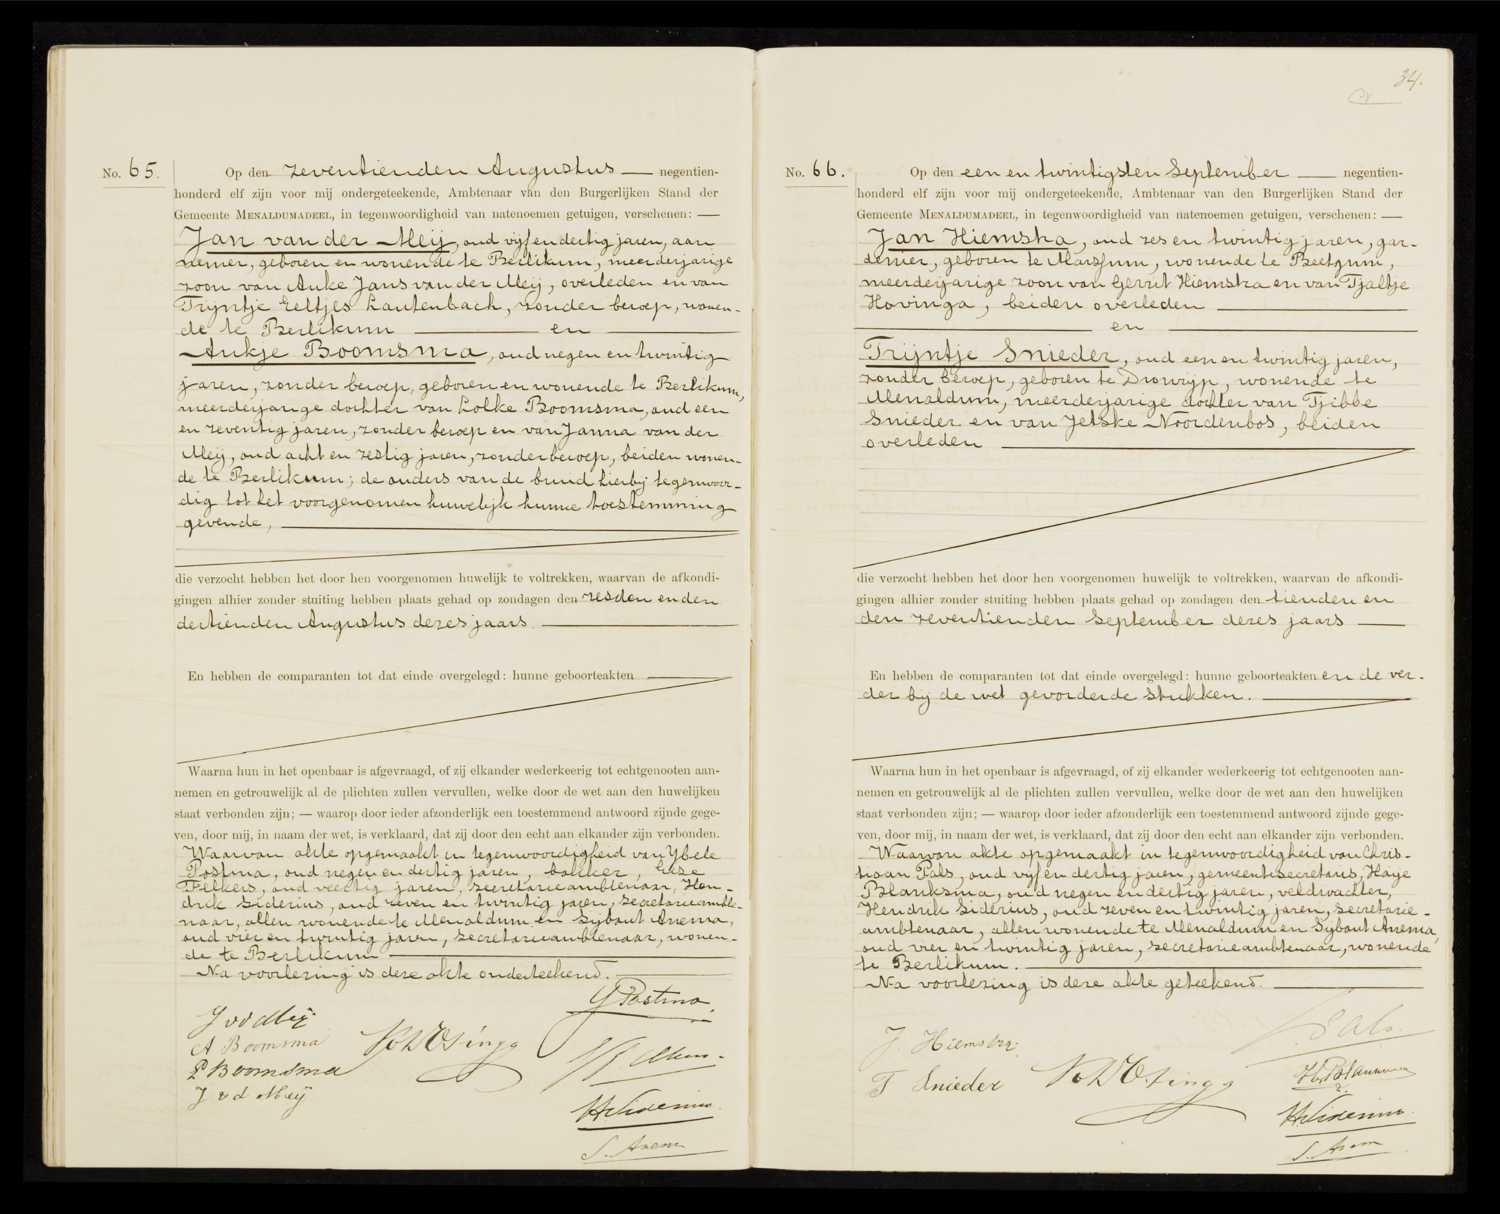 No. 65.
Op den zeventienden Augustus negentien-
honderd elf zijn voor mij ondergeteekende, Ambtenaar van den Burgerlijken Stand der
Gemeente MENALDUMADEEL, in tegenwoordigheid van natenoemen getuigen, verschenen: —
Jan van der Meij, oud vijf en dertig jaren, aan
nemer, geboren en wonende te Berlikum, meerderjarige
zoon van Auke Jans van der Meij, overleden en van
Trijntje Eeltjes Lautenbach, zonder beroep, wonen-
de te Berlikum — en —
Aukje Boomsma, oud negen en twintig
jaren, zonder beroep, geboren en wonende te Berlikum,
meerderjarige dochter van Lolke Boomsma, oud een
en zeventig jaren, zonder beroep en van Janna van der
Meij, oud acht en zestig jaren, zonder beroep, beiden wonen-
de te Berlikum; de ouders van de bruid hierbij tegenwoor-
dig tot het voorgenomen huwelijk hunne toestemming
gevende,
die verzocht hebben het door hen voorgenomen huwelijk te voltrekken, waarvan de afkondi-
gingen alhier zonder stuiting hebben plaats gehad op zondagen den zesden en den
dertienden Augustus dezes jaars
En hebben de comparanten tot dat einde overgelegd: hunne geboorteakten
Waarna hun in het openbaar is afgevraagd, of zij elkander wederkeerig tot echtgenooten aan-
nemen en getrouwelijk al de plichten zullen vervullen, welke door de wet aan den huwelijken
staat verbonden zijn; — waarop door ieder afzonderlijk een toestemmend antwoord zijnde gege-
ven, door mij, in naam der wet, is verklaard, dat zij door den echt aan elkander zijn verbonden.
Waarvan akte opgemaakt in tegenwoordigheid van Ybele
Postma, oud negen en dertig jaren, bakker, Eise
Felkers, oud veertig jaren, secretarieambtenaar, Hen-
drik Siderius, oud zeven en twintig jaren, secretarieambte-
naar, allen wonende te Menaldum en Sybout Anema,
oud vier en twintig jaren, secretarieambtenaar, wonen-
de te Berlikum
Na voorlezing is deze akte onderteekend.
J vd Meij
A Boomsma
L Boomsma
J v d Meij
Y Postma
HSiderius
S. Anema
34.
No. 66.
Op den een en twintigsten September negentien-
honderd elf zijn voor mij ondergeteekende, Ambtenaar van den Burgerlijken Stand der
Gemeente MENALDUMADEEL, in tegenwoordigheid van natenoemen getuigen, verschenen: —
Jan Hiemstra, oud zes en twintig jaren, gar-
denier, geboren te Marssum, wonende te Beetgum,
meerderjarige zoon van Gerrit Hiemstra en van Tjaltje
Hovinga, beiden overleden
— en —
Trijntje Snieder, oud een en twintig jaren,
zonder beroep, geboren te Dronrijp, wonende te
Menaldum, meerderjarige dochter van Tjibbe
Snieder en van Jetske Noordenbos, beiden
overleden
die verzocht hebben het door hen voorgenomen huwelijk te voltrekken, waarvan de afkondi-
gingen alhier zonder stuiting hebben plaats gehad op zondagen den tienden en
den zeventienden September dezes jaars
En hebben de comparanten tot dat einde overgelegd: hunne geboorteakten en de ver-
der bij de wet gevorderde stukken.
Waarna hun in het openbaar is afgevraagd, of zij elkander wederkeerig tot echtgenooten aan-
nemen en getrouwelijk al de plichten zullen vervullen, welke door de wet aan den huwelijken
staat verbonden zijn; — waarop door ieder afzonderlijk een toestemmend antwoord zijnde gege-
ven, door mij, in naam der wet, is verklaard, dat zij door den echt aan elkander zijn verbonden.
Waarvan akte opgemaakt in tegenwoordigheid van Chris-
tiaan Pals, oud vijf en dertig jaren, gemeentesecretaris, Haye
Blanksma, oud negen en dertig jaren, veldwachter,
Hendrik Siderius, oud zeven en twintig jaren, secretarie-
ambtenaar, allen wonende te Menaldum en Sybout Anema,
oud vier en twintig jaren, secretarieambtenaar, wonende
te Berlikum.
Na voorlezing is deze akte geteekend.
J. Hiemstra
T Snieder
Pals.
HSiderius
S. Anema